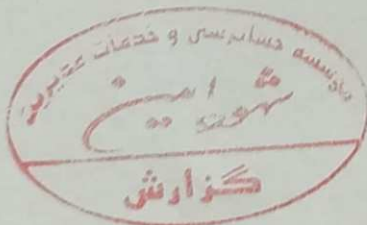 موسسه حسابرسی و خدمات مدیریت
ثمین
گزارش